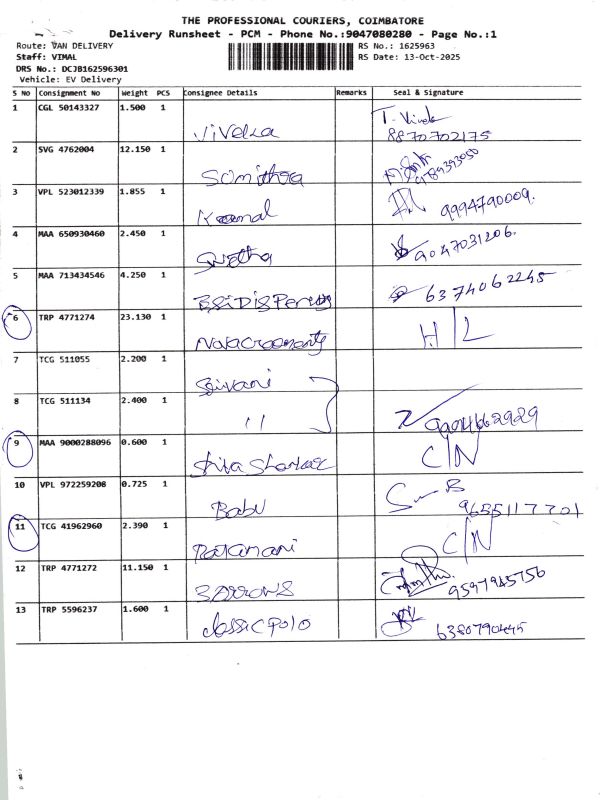 THE PROFESSIONAL COURIERS, COIMBATORE
Delivery Runsheet - PCM - Phone No.:9047080280 - Page No.:1
Route: VAN DELIVERY
RS No.: 1625963
Staff: VIMAL
RS Date: 13-Oct-2025
DRS No.: DCJB162596301
Vehicle: EV Delivery
S No Consignment No Weight PCS Consignee Details Remarks Seal & Signature
1 CGL 50143327 1.500 1 T. Vivek
8870702175
2 SVG 4762004 12.150 1 Sumithra
3 VPL 523012339 1.855 1 Kamal 9994790009.
4 MAA 650930460 2.450 1 Swetha 9047031206.
5 MAA 713434546 4.250 1 6374062245
6 TRP 4771274 23.130 1 H/L
7 TCG 511055 2.200 1 Srivani
8 TCG 511134 2.400 1 11
9 MAA 9000288096 0.600 1 Shiva Shankar C/N
10 VPL 972259208 0.725 1 Babu 9655117701
11 TCG 41962960 2.390 1 Rajamani C/N
12 TRP 4771272 11.150 1 9597945756
13 TRP 5596237 1.600 1 classic polo 6380790445